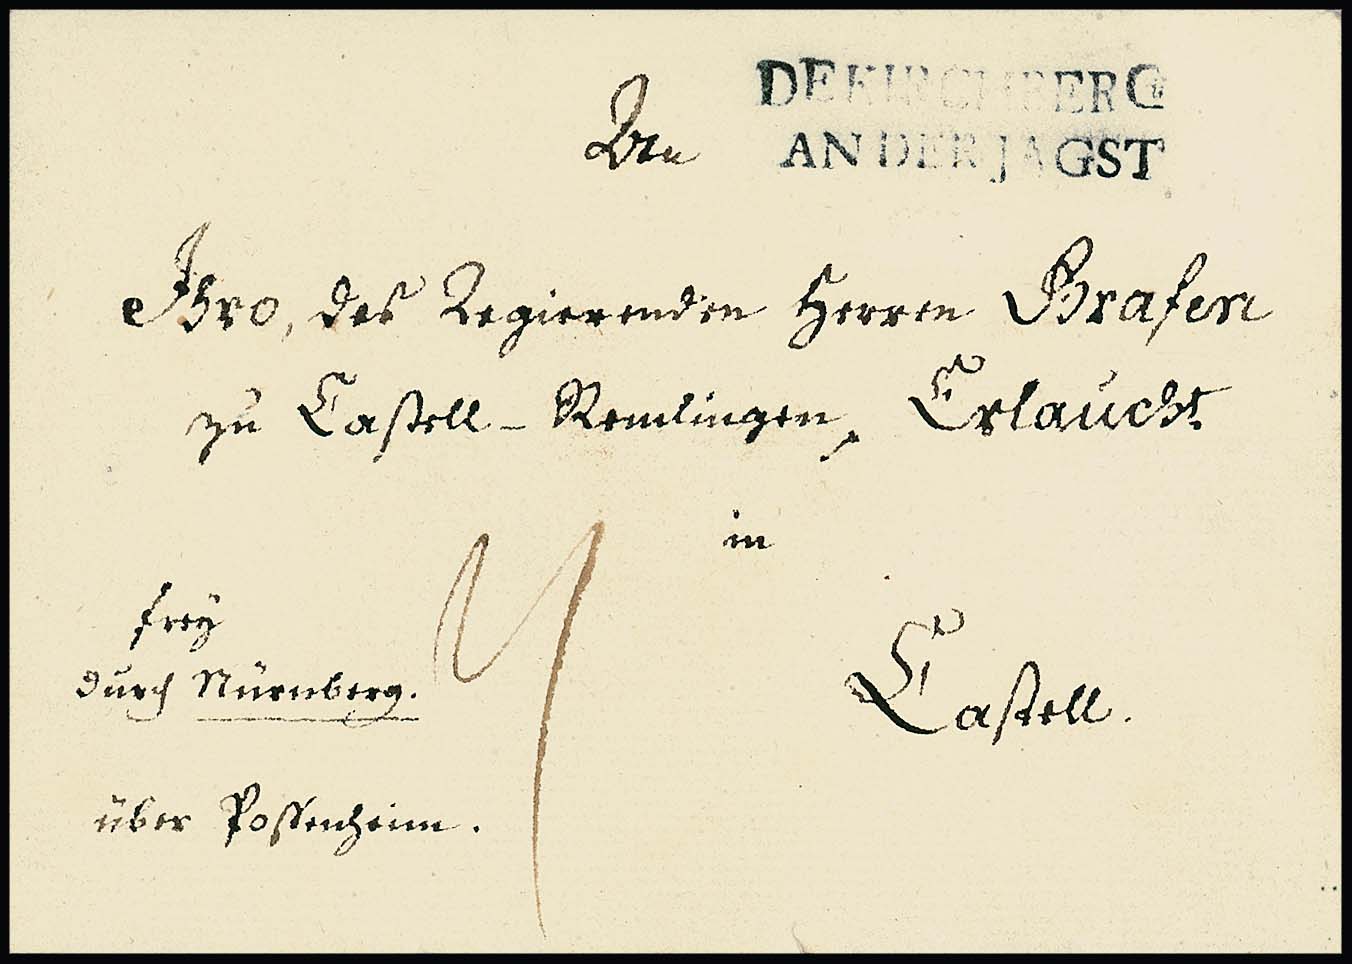 DE KIRCHBERG
AN DER JAGST
An
Ihro, des Regierenden Herren Grafen
zu Castell - Remlingen, Erlaucht
in
frey
durch Nürnberg.
Castell.
über Possenheim.